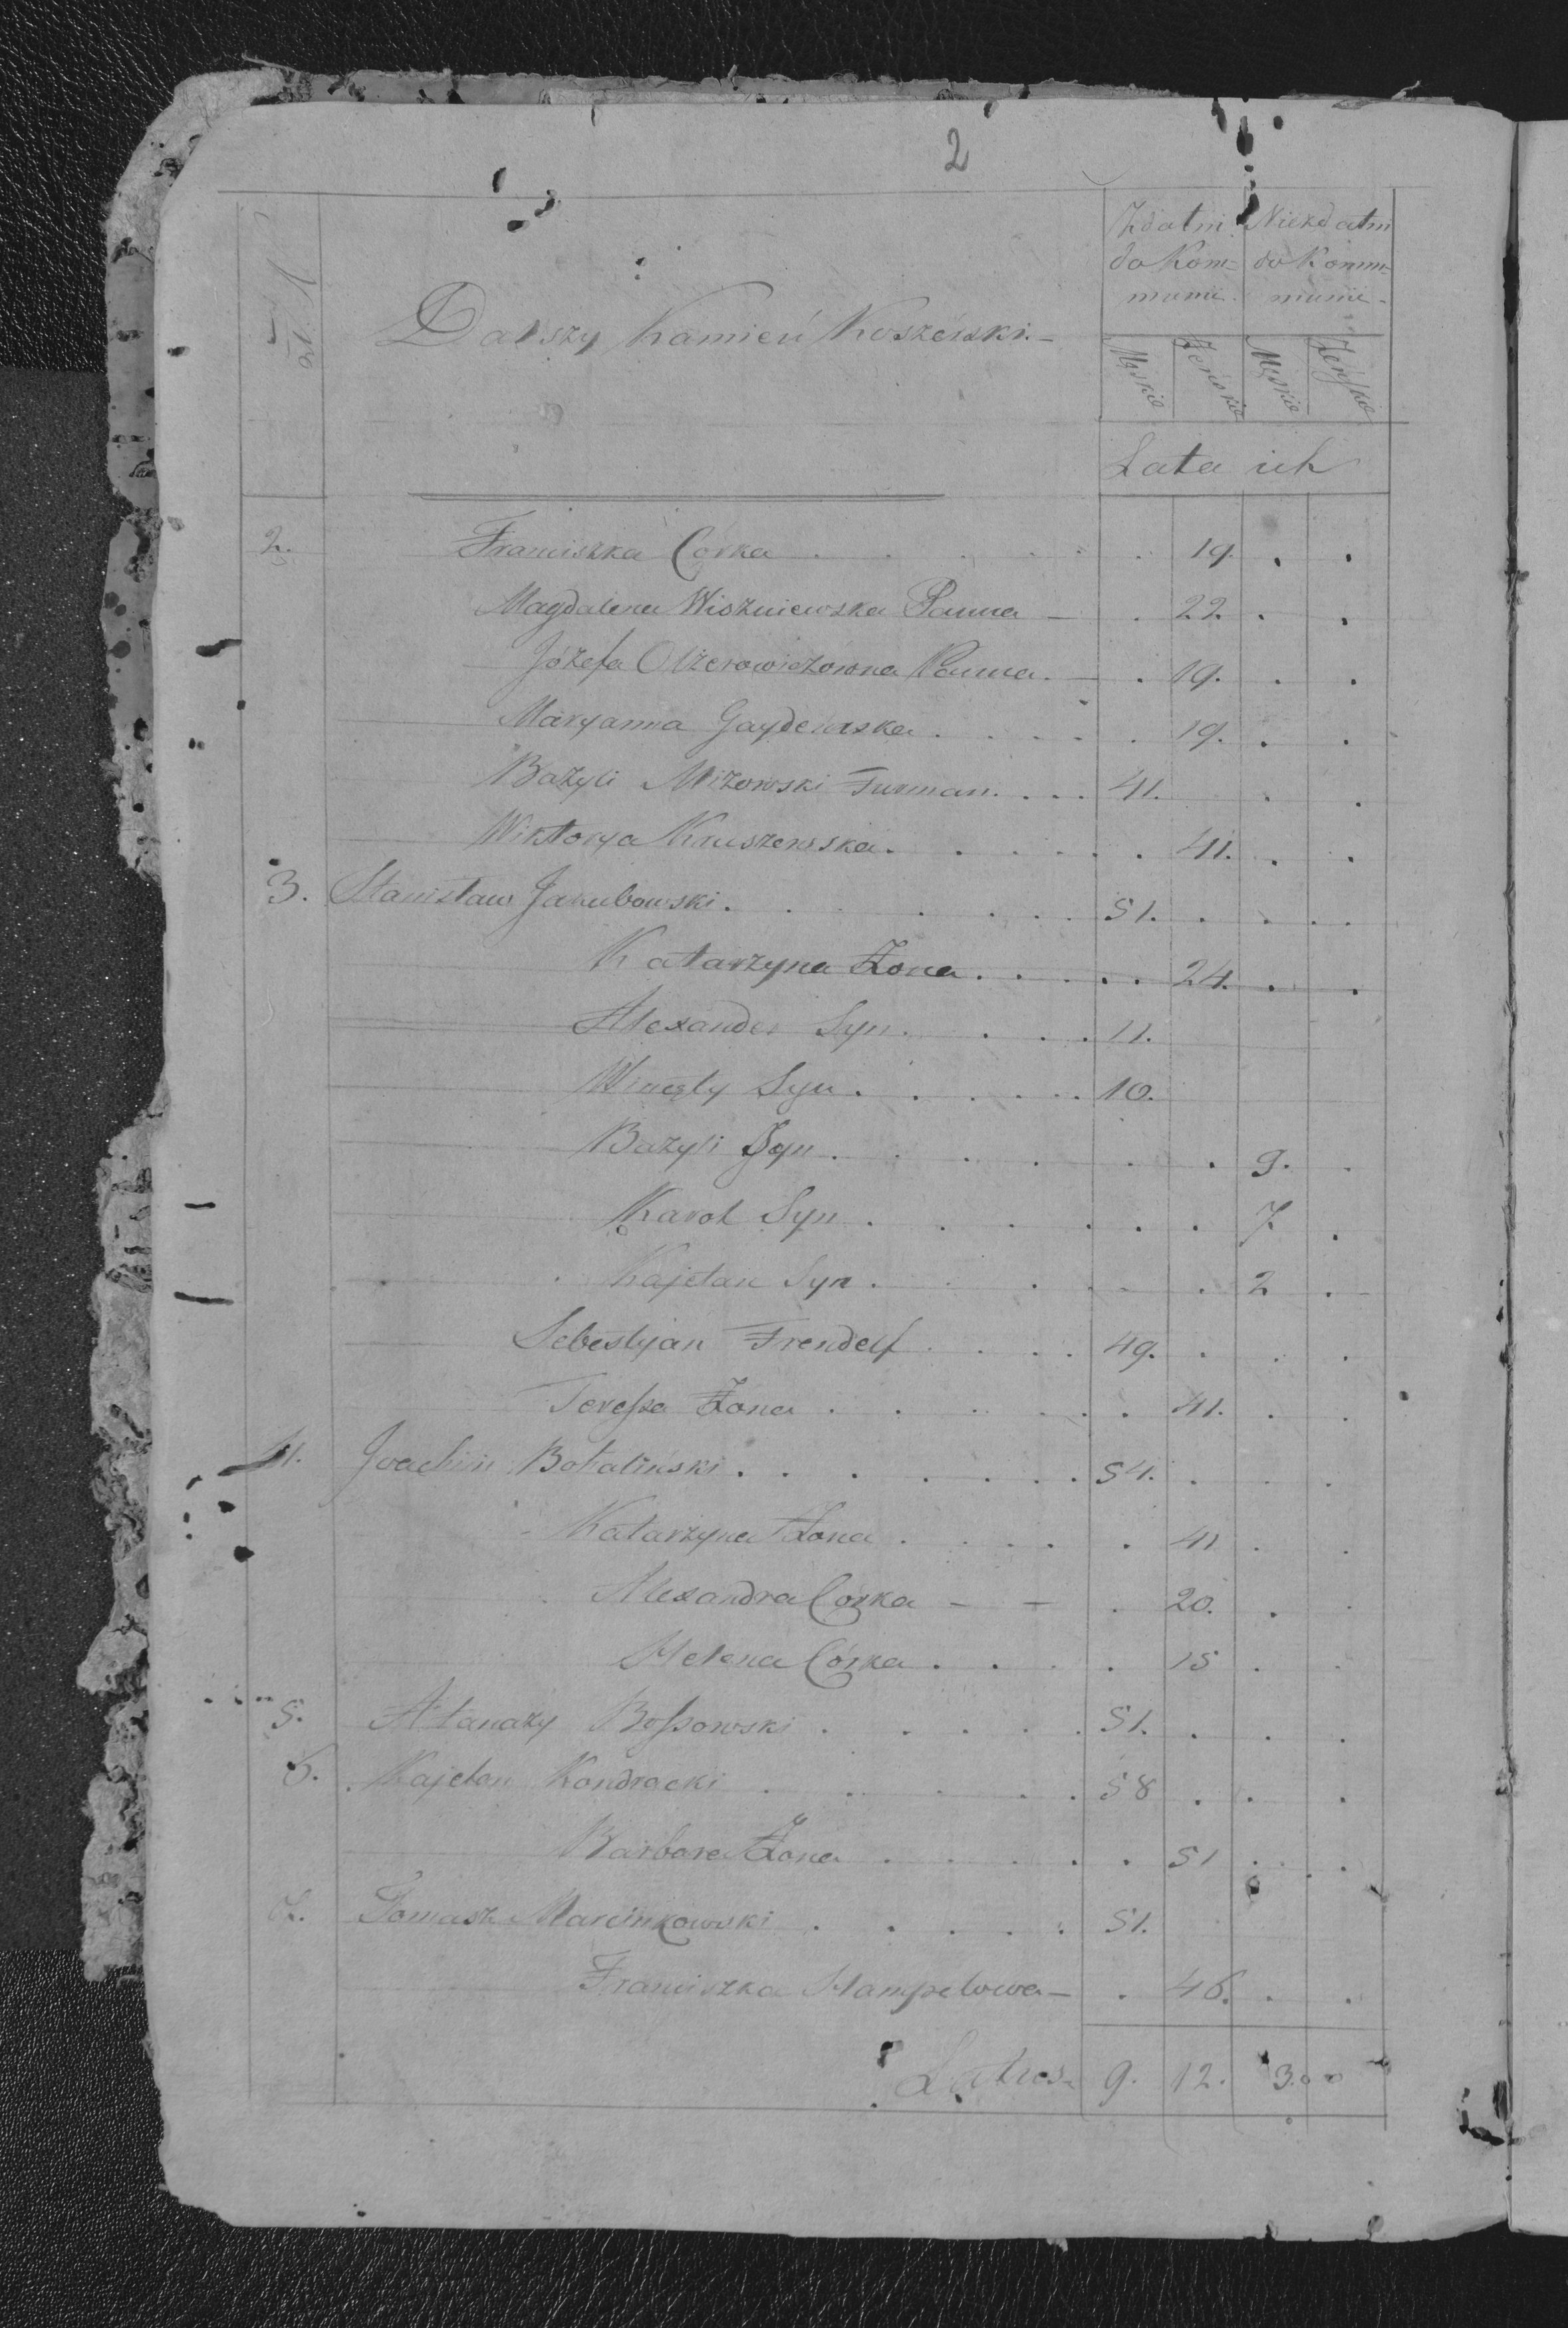 2
Dalszy Kamień Koszérski.-
Zdatni do Kom= munii.
Niezdatni do Komm= munii.
Męskie Żeńskie Męskie Żeńskie
Lata ich
2. Franciszka Córka . . . . . . 19. . .
Magdalena Wiszniewska Panna - . 22. . .
Józefa Olżerowiczowna Panna. - . 19. . .
Maryanna Gaydenska . . . . . 19. . .
Bazyli Mizowski Furman. . . . 41. . .
Wiktorya Kruszewska. . . . . . 41. . .
3. Stanisław Jakubowski. . . . . . 51. . . . .
Katarzyna Żona . . . . . . 24. . .
Alexander Syn. . . . . 11.
Wincęty Syn . . . . . 10.
Bazyli Syn . . . . . . 9. .
Karol Syn . . . . . . . 7. .
Kajetan Syn . . . . . . 2 .
Sebestyan Frendelf . . . . 49. . . .
Teressa Żona . . . . . . 41. . .
4. Joachim Bohaliński . . . . . . . 54. . . .
Katarzyna Żona . . . . . 41 . .
Alexandra Córka - - . 20. . .
Helena Córka . . . . . 15 . .
5. Atanazy Bossowski . . . . . 51. . . .
6. Kajetan Kondracki . . . . . 58 . . .
Barbara Żona . . . . . . 51 . . .
7. Tomasz Marcinkowski . . . . . 51.
Franciszka Hampelowa - . 46. . .
Latus. 9. 12. 3. "